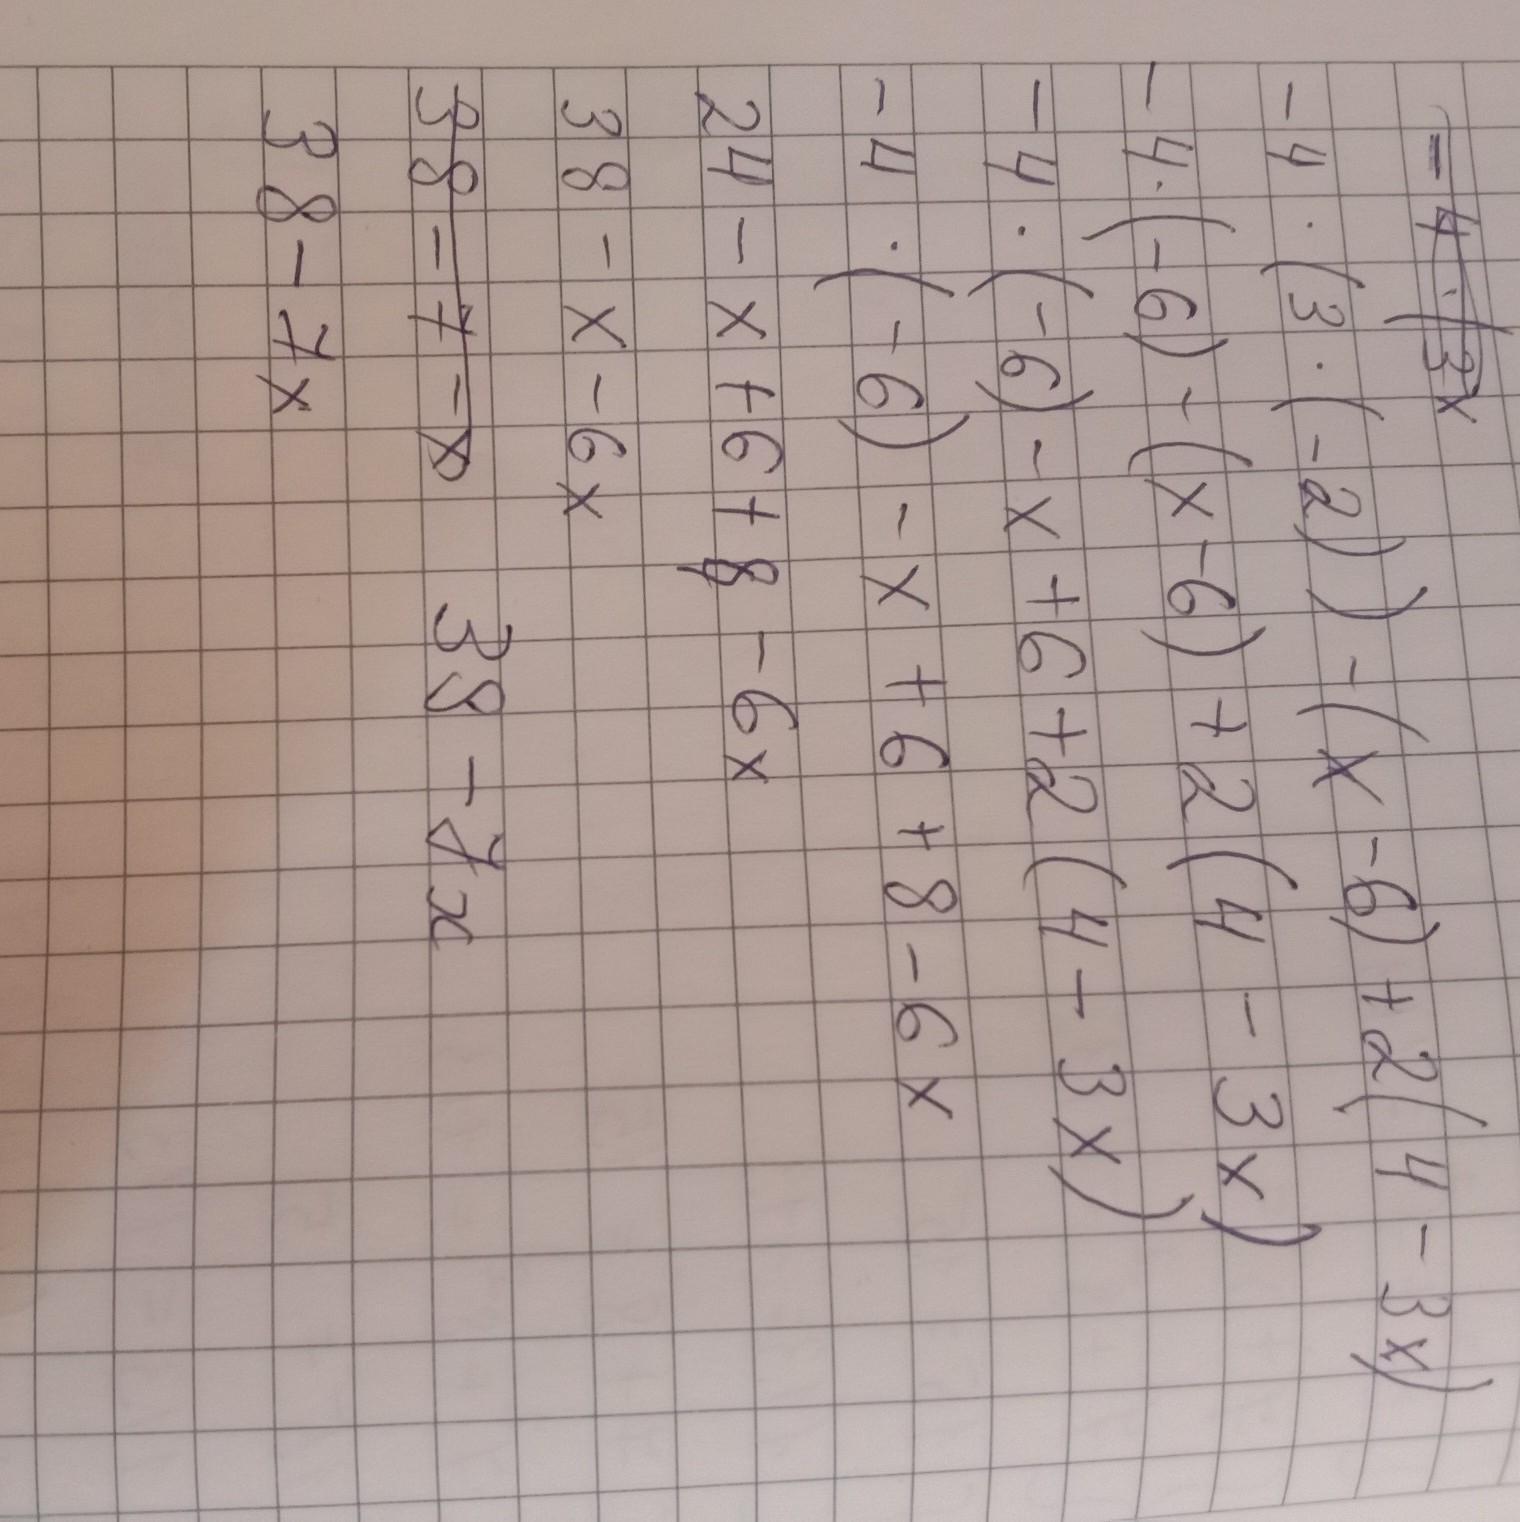 -4·(3x
-4·(3·(-2))-(x-6)+2(4-3x)
-4·(-6)-(x-6)+2(4-3x)
-4·(-6)-x+6+2(4-3x)
-4·(-6)-x+6+8-6x
24-x+6+8-6x
38-x-6x
38-7-x 38-7x
38-7x